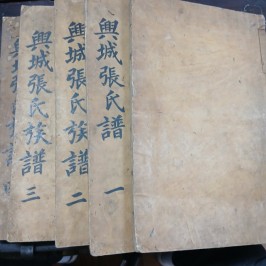 興城張氏譜 一
興城張氏族譜 二
興城張氏族譜 三